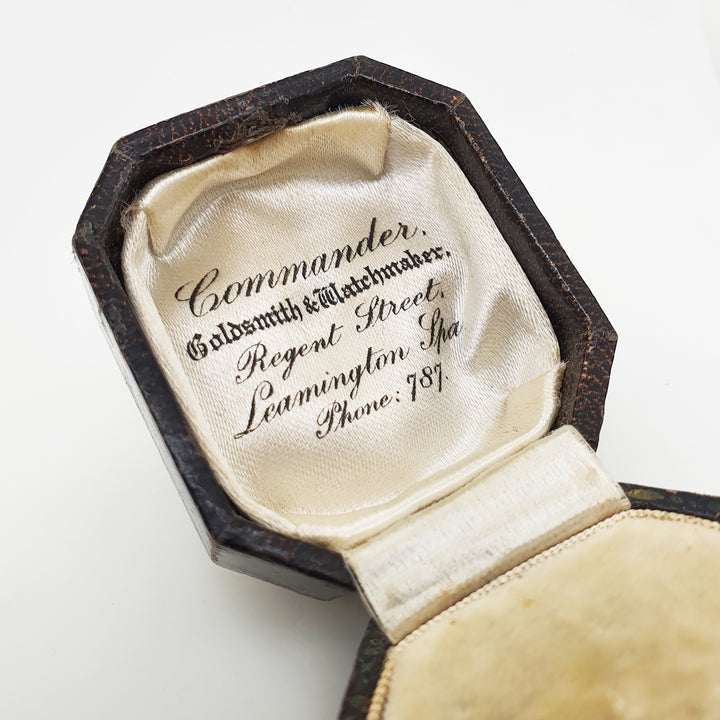 Commander,
Goldsmith & Watchmaker,
Regent Street,
Leamington Spa
Phone: 787.